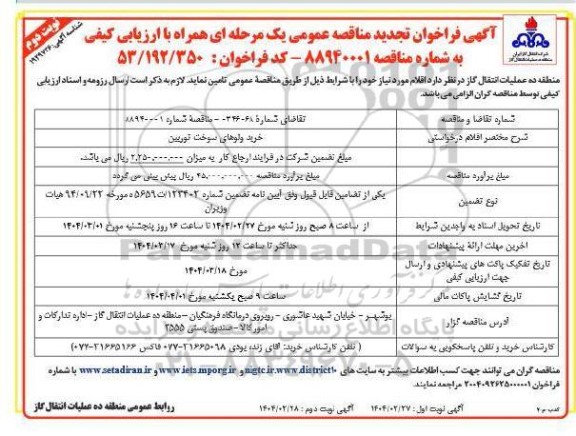 آگهی فراخوان تجدید مناقصه عمومی یک مرحله ای همراه با ارزیابی کیفی
به شماره مناقصه ۸۸۹۴۰۰۰۱ – کد فراخوان : ۵۳/۱۹۲/۳۵۰
نوبت دوم
منطقه ده عملیات انتقال گاز در نظر دارد اقلام مورد نیاز خود را با شرایط ذیل از طریق مناقصهٔ عمومی تامین نماید. لازم به ذکر است ارسال رزومه و اسناد ارزیابی
کیفی توسط مناقصه گران الزامی می‌باشد.
شماره تقاضا و مناقصه
شرح مختصر اقلام درخواستی
خرید ولوهای سوخت توربین
مبلغ تضمین شرکت در فرایند ارجاع کار به میزان ۲,۲۵۰,۰۰۰,۰۰۰ ریال می باشد.
مبلغ برآورده مناقصه
مبلغ برآورده مناقصه ۴۵,۰۰۰,۰۰۰,۰۰۰ ریال پیش بینی می گردد
نوع تضمین
یکی از تضامین قابل قبول وفق آیین نامه تضمین شماره ۱۲۳۴۰۲/ت۵۶۵۹ه مورخه ۹۴/۰۹/۲۲ هیات
وزیران
تاریخ تحویل اسناد به واجدین شرایط
از ساعت ۸ صبح روز شنبه مورخ ۱۴۰۴/۰۲/۲۷ تا ساعت ۱۶ روز پنجشنبه مورخ ۱۴۰۴/۰۳/۰۱
آخرین مهلت ارائهٔ پیشنهادات
حداکثر تا ساعت ۱۲ روز شنبه مورخ ۱۴۰۴/۰۳/۱۷
تاریخ تفکیک پاکت های پیشنهادی و ارسال
جهت ارزیابی کیفی
مورخ ۱۴۰۴/۰۳/۱۸
تاریخ گشایش پاکات مالی
ساعت ۹ صبح یکشنبه مورخ ۱۴۰۴/۰۴/۰۱
آدرس مناقصه گزار
بوشهر – خیابان شهید عاشوری – روبروی درمانگاه فرهنگیان – منطقه ده عملیات انتقال گاز – اداره تدارکات و
امور کالا – صندوق پستی ۲۵۵۵
کارشناس خرید و تلفن پاسخگویی به سوالات
( تلفن کارشناس خرید: آقای زنده بودی ۳۱۶۶۵۰۶۸-۰۷۷ فاکس ۳۱۶۶۵۱۶۶-۰۷۷)
مناقصه گران می توانند جهت کسب اطلاعات بیشتر به سایت های nigtc.ir\www.district10 و www.iets.mporg.ir و www.setadiran.ir با شماره
فراخوان ۲۰۰۴۰۹۲۶۲۵۰۰۰۰۰۱ مراجعه نمایند.
آگهی نوبت اول : ۱۴۰۴/۰۲/۲۷ آگهی نوبت دوم : ۱۴۰۴/۰۲/۲۸
روابط عمومی منطقه ده عملیات انتقال گاز